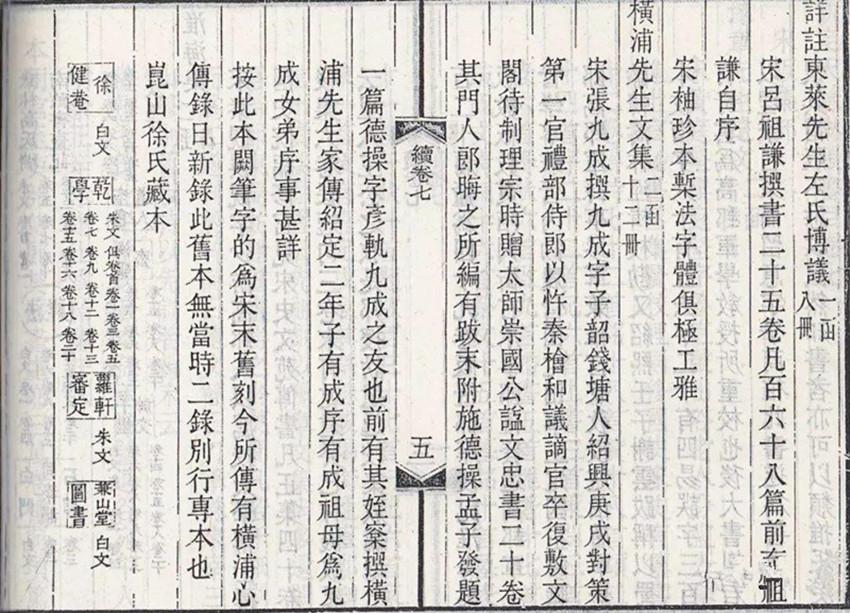 詳註東萊先生左氏博議一函八冊
宋呂祖謙撰書二十五卷凡百六十八篇前有祖
謙自序
宋袖珍本槧法字體俱極工雅
橫浦先生文集二函十二冊
宋張九成撰九成字子韶錢塘人紹興庚戌對策
第一官禮部侍郎以忤秦檜和議謫官卒復敷文
閣待制理宗時贈太師崇國公諡文忠書二十卷
其門人郎晦之所編有跋末附施德操孟子發題
續卷七
五
一篇德操字彥軌九成之友也前有其姪寀撰橫
浦先生家傳紹定二年子有成序有成祖母為九
成女弟序事甚詳
按此本闕筆字的為宋末舊刻今所傳有橫浦心
傳錄日新錄此舊本無當時二錄別行專本也
崑山徐氏藏本
徐健菴
白文
乾學
朱文
俱卷首卷二卷三卷五
卷七
卷九
卷十二
卷十三
卷十五
卷十六
卷十八
卷二十
羅軒審定
朱文
兼山堂圖書
白文